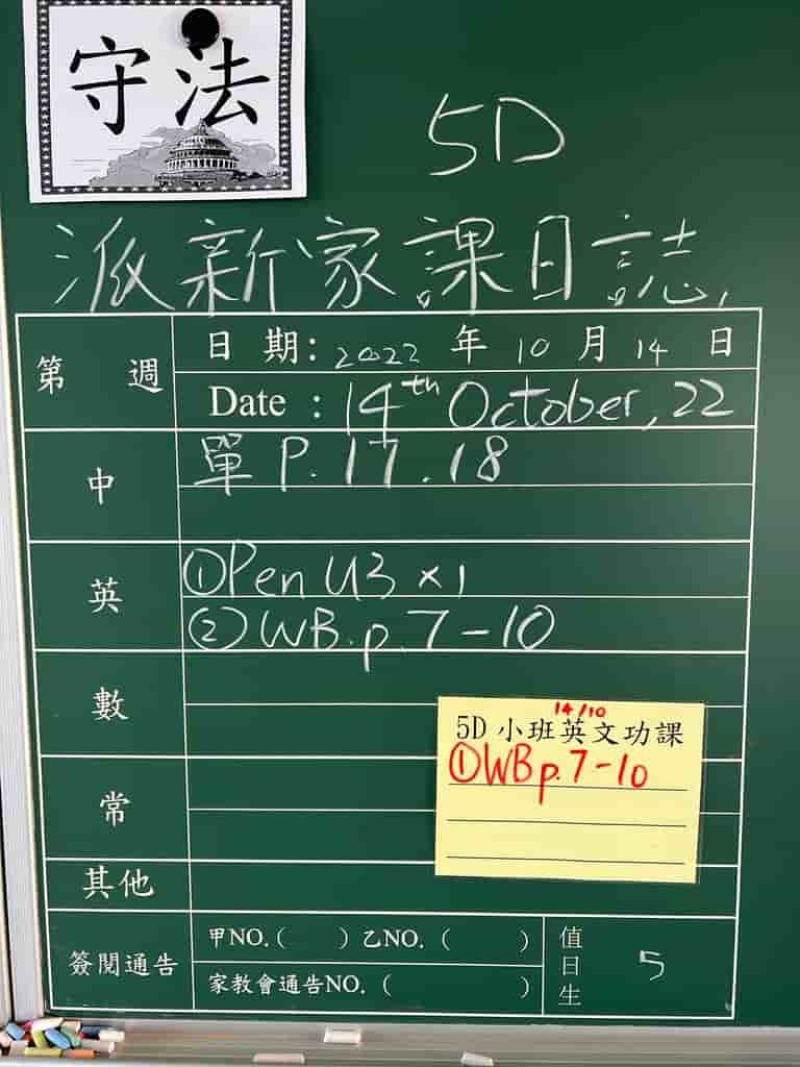 守法
5D
派新家課日誌,
第 週
日 期: 2022 年 10 月 14 日
Date : 14th October, 22
中
單 P. 17. 18
英
①Pen U3 ×1
②WB.p. 7-10
數
14/10
5D 小班英文功課
①WB p. 7-10
常
其他
簽閱通告
甲NO.( ) 乙NO. ( )
家教會通告NO. ( )
值日生
5